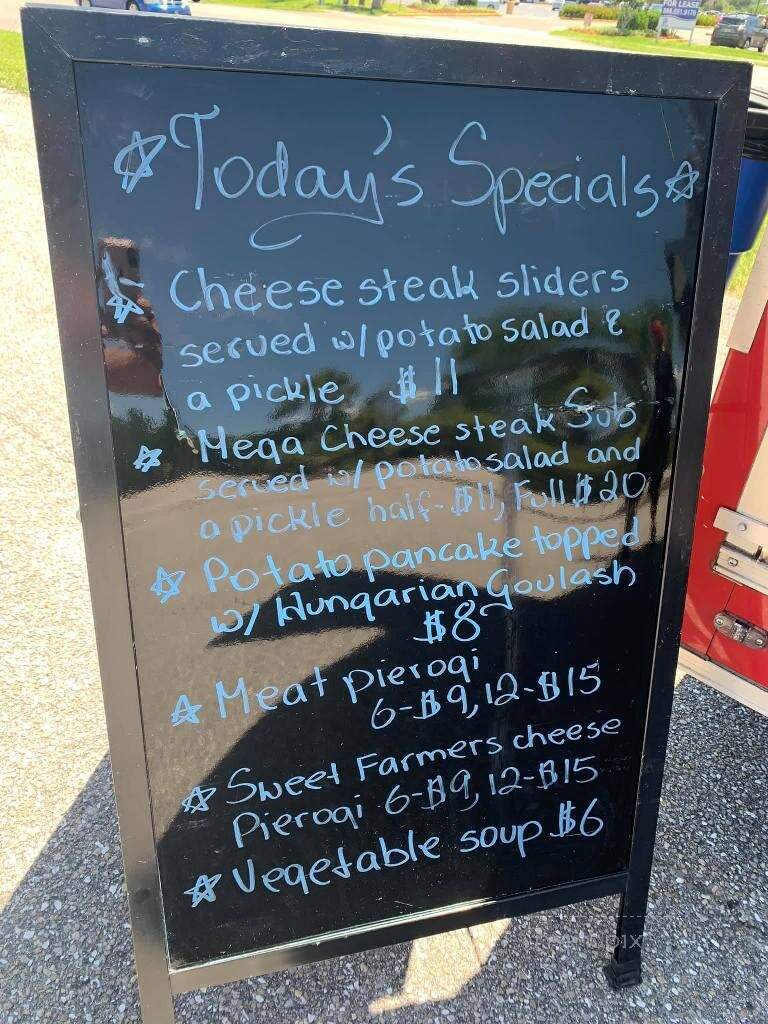 FOR LEASE
☆ Today's Specials ☆
☆ Cheese steak sliders
served w/potato salad &
a pickle $11
☆ Mega Cheese steak Sub
served w/ potato salad and
a pickle half-$11, Full $20
☆ Potato pancake topped
w/ Hungarian Goulash
$8
☆ Meat pierogi
6-$9, 12-$15
☆ Sweet Farmers cheese
Pierogi 6-$9, 12-$15
☆ Vegetable soup $6